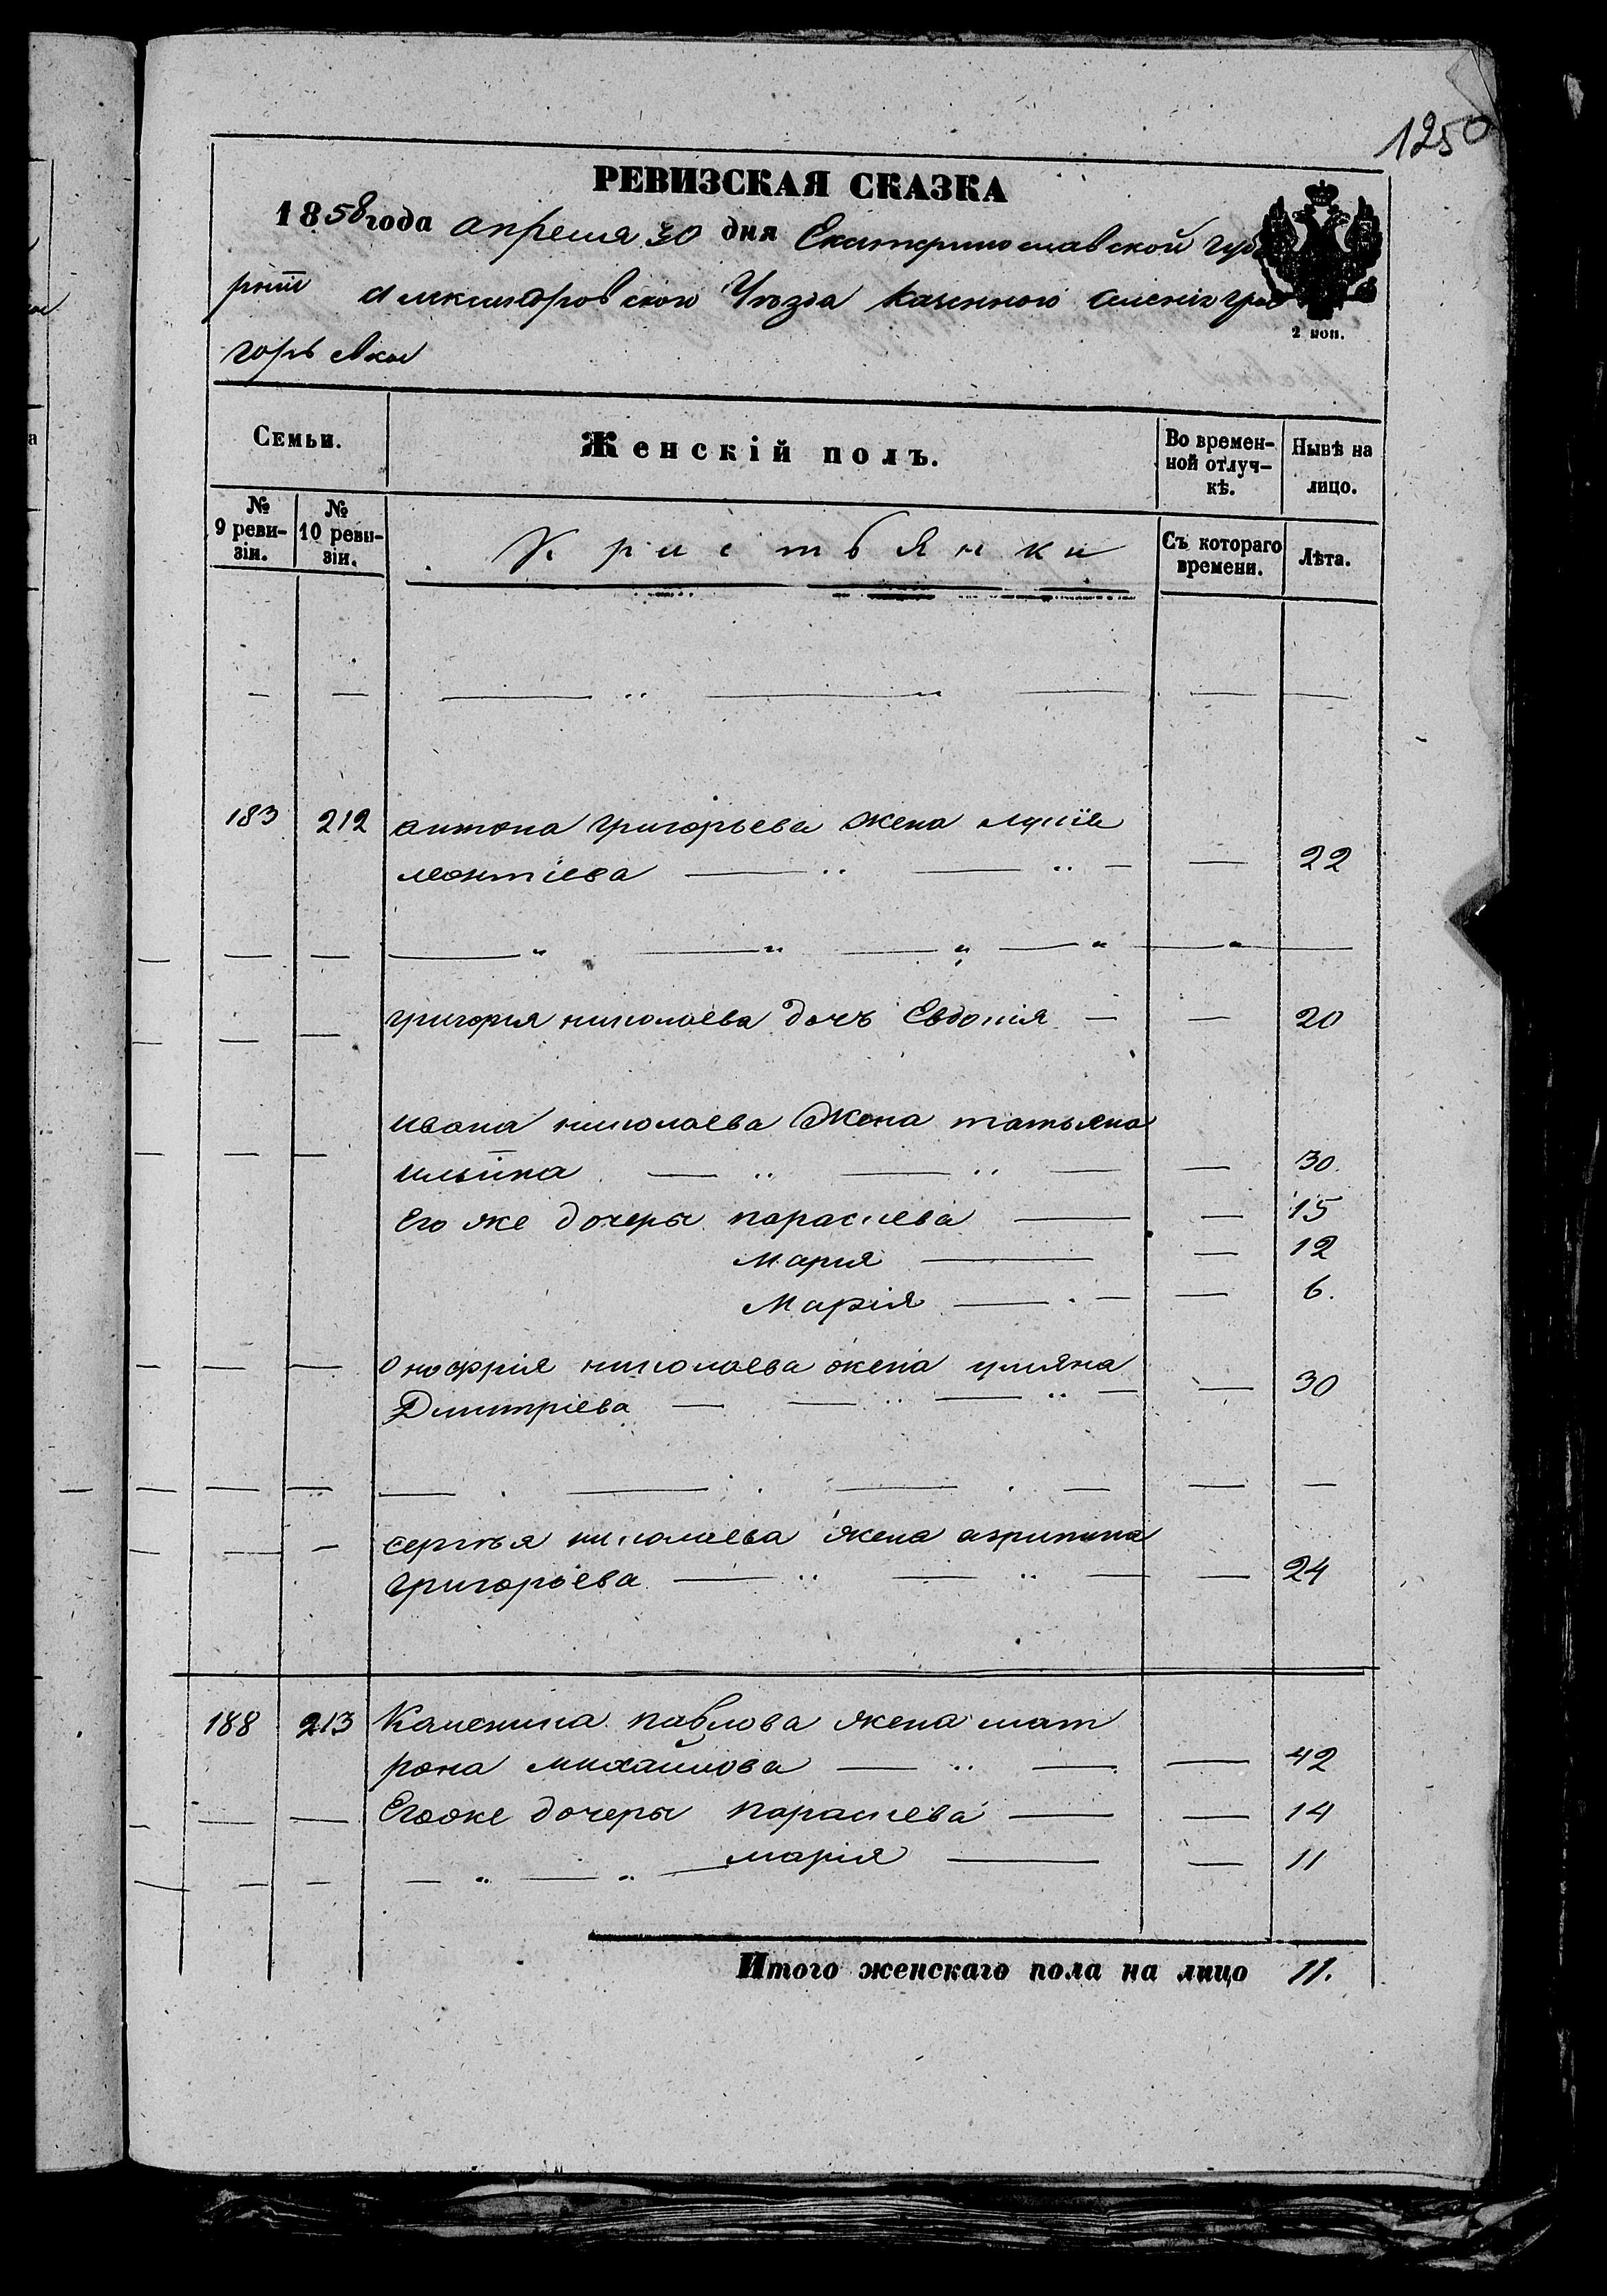 1250
РЕВИЗСКАЯ СКАЗКА
1858 года апреля 30 дня Екатеринославской губ
рніи Александровского Уѣзда казенного селенія Гри
горьевки
2 коп.
Семьи.
Женскій полъ.
Во времен-
ной отлуч-
кѣ.
Нынѣ на
лицо.
№
9 реви-
зіи.
№
10 реви-
зіи.
Крестьянки
Съ котораго
времени.
Лѣта.
— — — „ — „ — — —
183 212 антона григорьева жена
леонтіева — „ — „ — — 22
— — — „ — „ — „ — „ — „ —
— — григория николаева дочь Евдокия — — 20
ивана николаева жена татьяна
— — ильина — „ — „ — — 30.
Его же дочеры параскева — — 15
Мария — — 12
Марія — — 6.
— — Онофрія николаева жена уляна
Дмитріева — — „ — „ — — 30
— — — — — — — —
— — сергѣя николаева жена агрипина
григорьева — „ — „ — — 24
188 213 Каленика павлова жена мат
рона михайлова — „ — — 42
— — Егоже дочеры параскева — — 14
— — — „ — „ — марія — — 11
Итого женскаго пола на лицо 11.